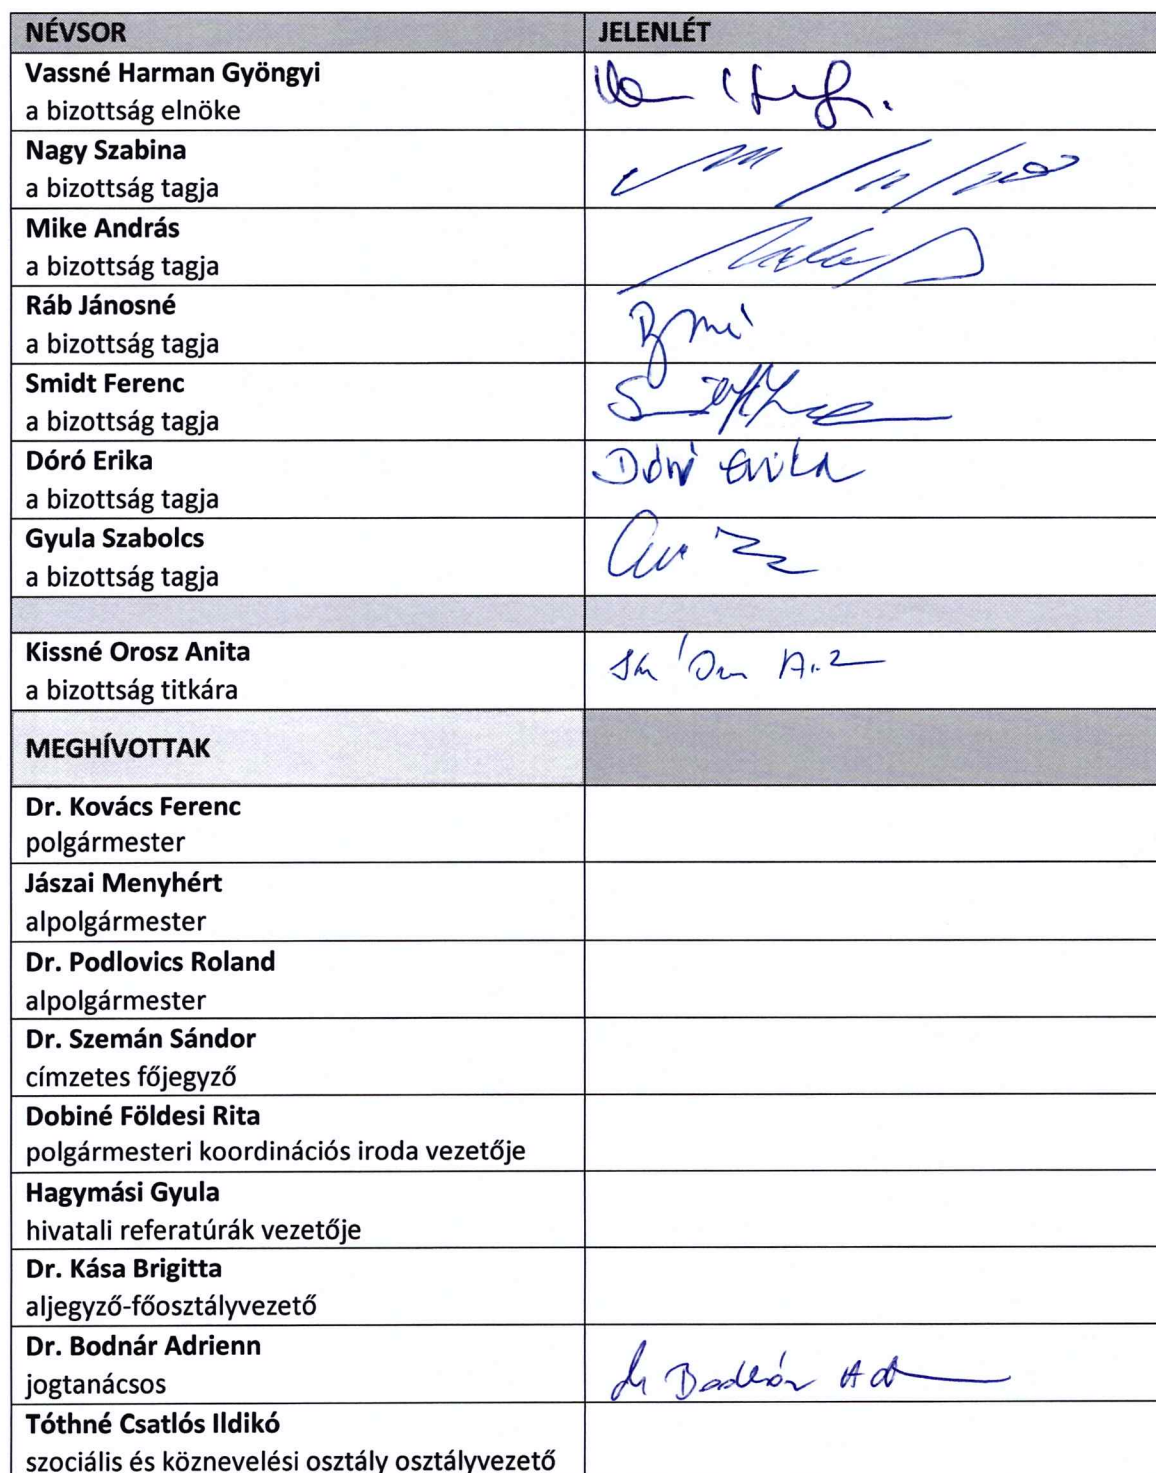 NÉVSOR JELENLÉT
Vassné Harman Gyöngyi
a bizottság elnöke
Nagy Szabina
a bizottság tagja
Mike András
a bizottság tagja
Ráb Jánosné
a bizottság tagja
Smidt Ferenc
a bizottság tagja
Dóró Erika
a bizottság tagja
Dóró Erika
Gyula Szabolcs
a bizottság tagja
Kissné Orosz Anita
a bizottság titkára
MEGHÍVOTTAK
Dr. Kovács Ferenc
polgármester
Jászai Menyhért
alpolgármester
Dr. Podlovics Roland
alpolgármester
Dr. Szemán Sándor
címzetes főjegyző
Dobiné Földesi Rita
polgármesteri koordinációs iroda vezetője
Hagymási Gyula
hivatali referatúrák vezetője
Dr. Kása Brigitta
aljegyző-főosztályvezető
Dr. Bodnár Adrienn
jogtanácsos
Tóthné Csatlós Ildikó
szociális és köznevelési osztály osztályvezető